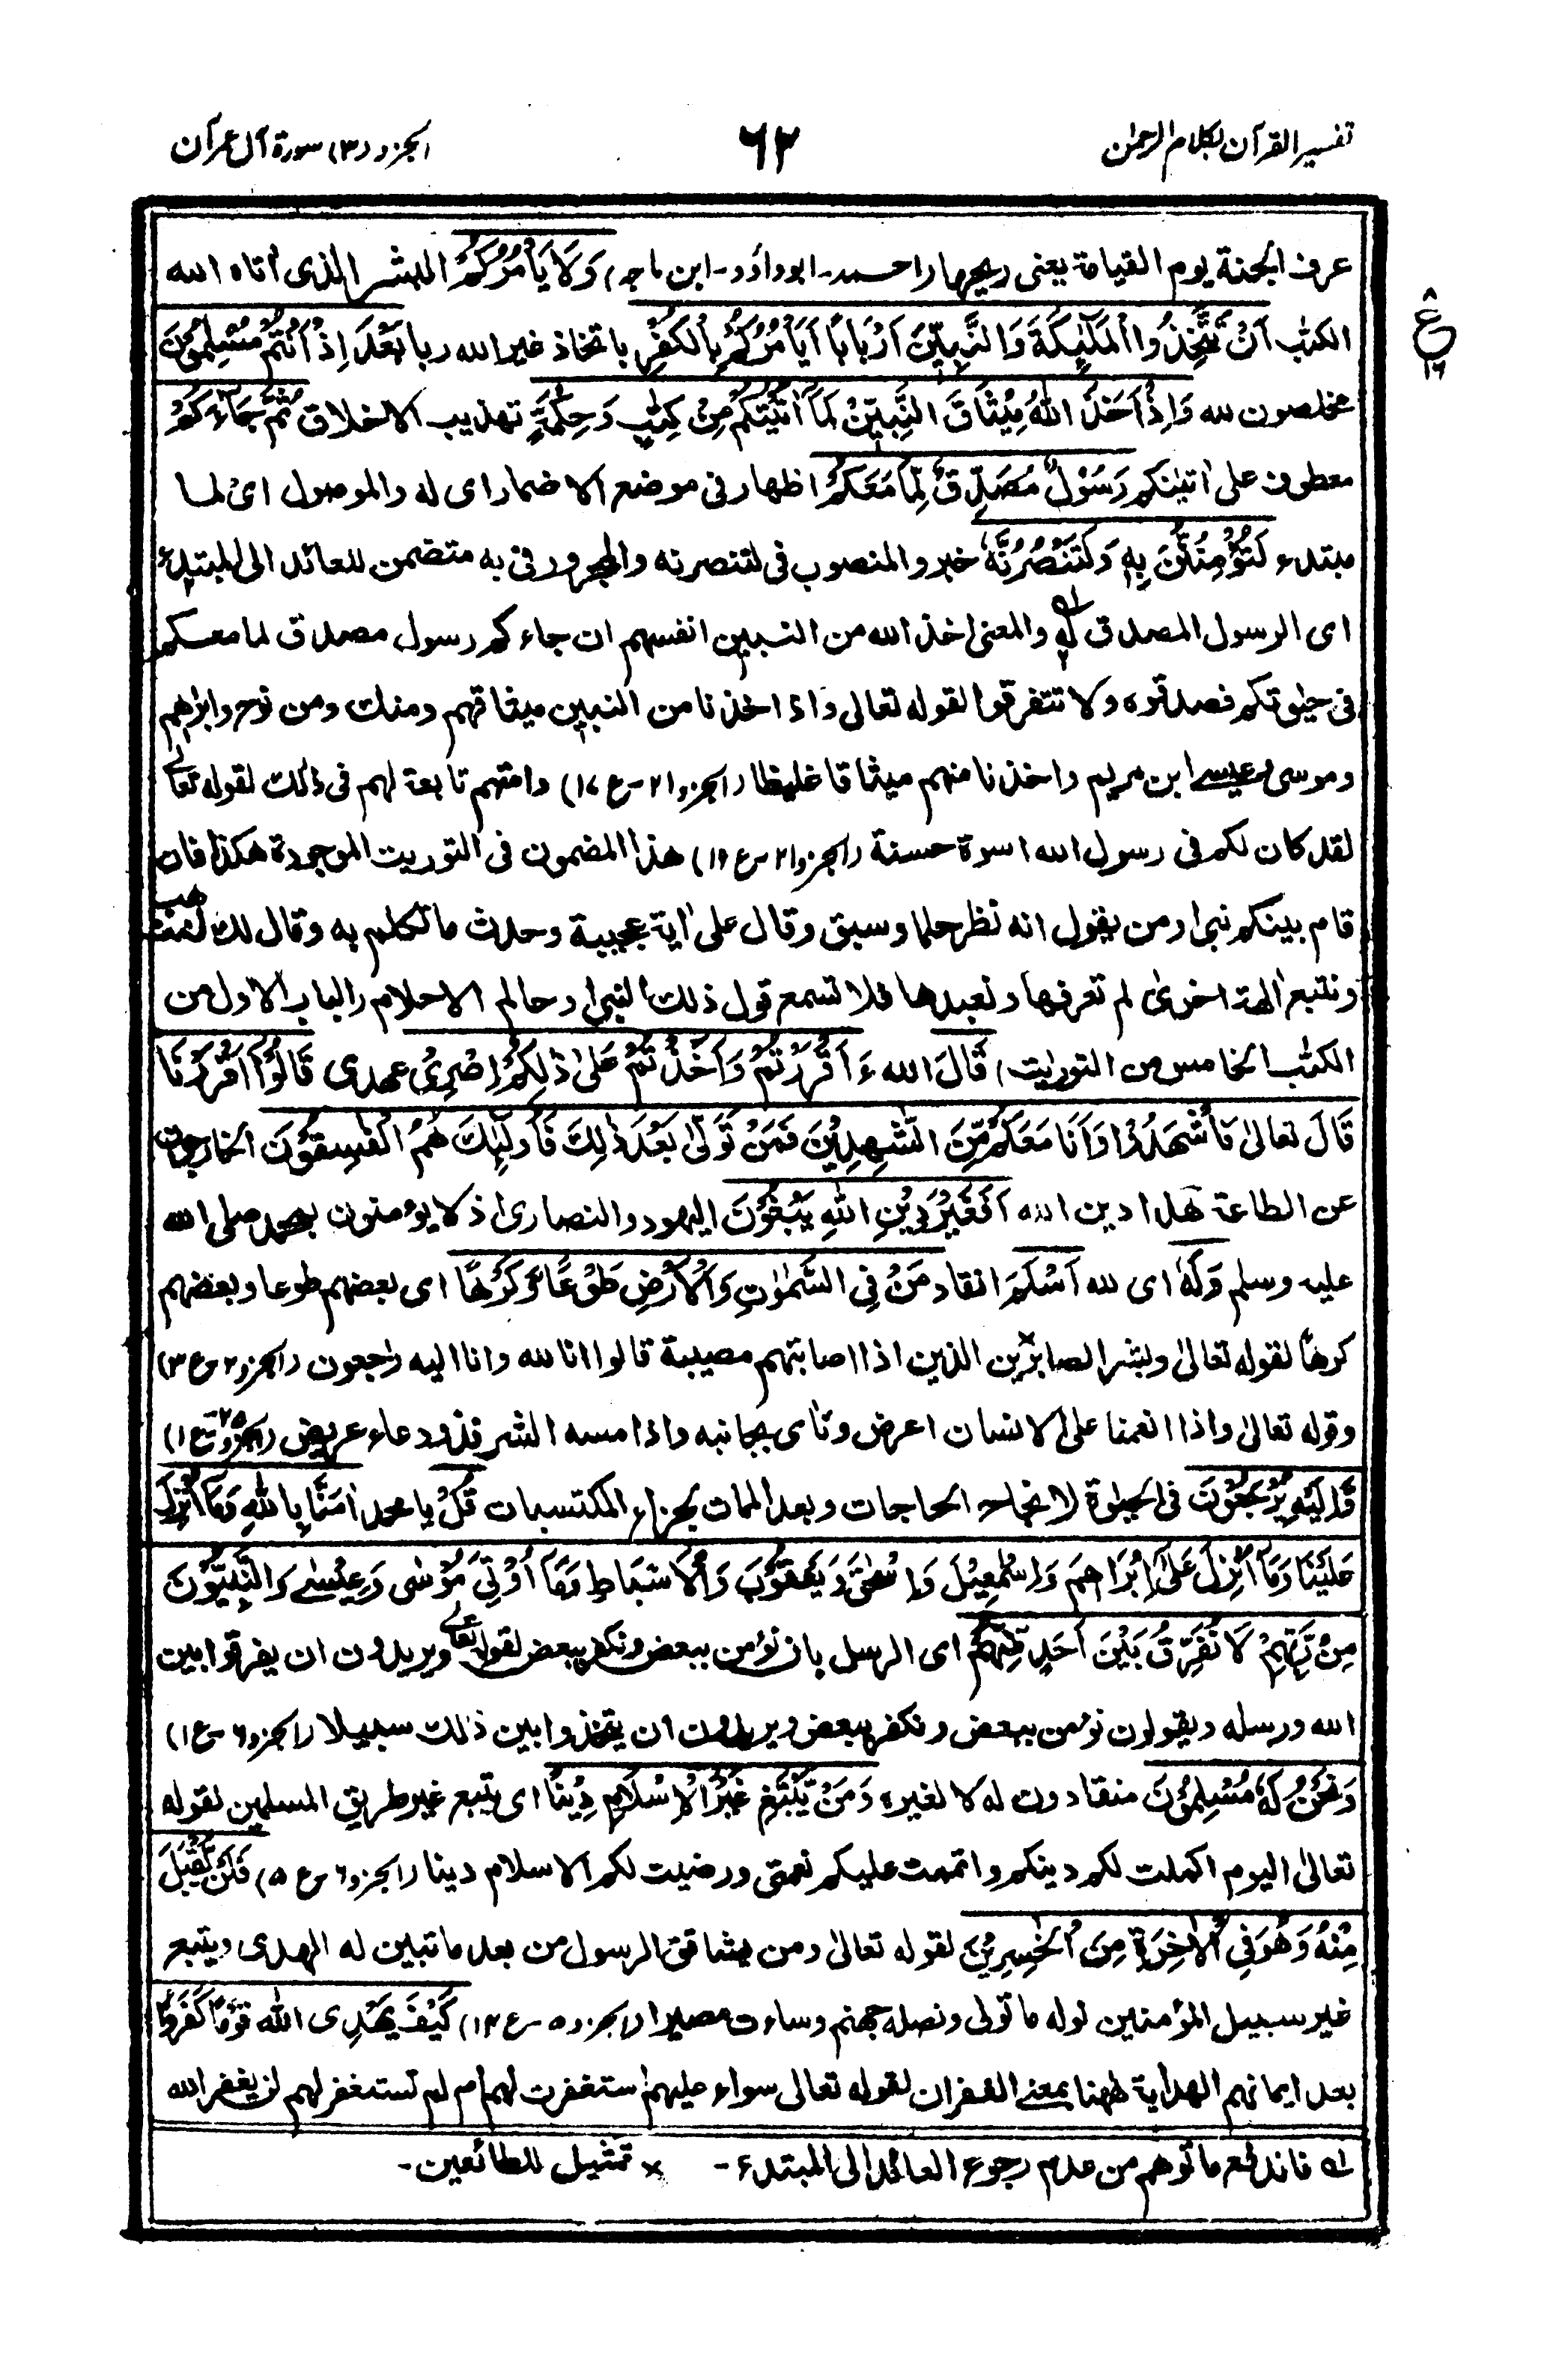 تفسير القرآن بكلام الرحمن
٦٢
الجزو (٣) سورة آل عمرآن
عرف الجنة يوم القيامة يعنى ريحها (احمد - ابوداؤد - ابن ماجه) وَلَا يَأْمُرَكُمْ البشر الذى اٰتاه الله
الكتٰب اَنْ تَتَّخِذُوا الْمَلٰٓئِكَةَ وَالنَّبِيّٖنَ اَرْبَابًا اَيَأْمُرُكُمْ بِالْكُفْرِ باتخاذ غير الله ربا بَعْدَ اِذْ اَنْتُمْ مُّسْلِمُوْنَ
ع
٨
١٦
مخلصون لله وَاِذْ اَخَذَ اللهُ مِيْثَاقَ النَّبِيّٖنَ لَمَآ اٰتَيْتُكُمْ مِنْ كِتٰبٍ وَحِكْمَةٍ تهذيب الاخلاق ثُمَّ جَآءَكُمْ
معطوف على اٰتيتكم رَسُوْلٌ مُصَدِّقٌ لِّمَا مَعَكُمْ اظهار فى موضع الاضمار اى له والموصول اى لما
مبتدء لَتُؤْمِنُنَّ بِهٖ وَلَتَنْصُرُنَّهٗ خبر والمنصوب فى لتنصرنه والمجرور فى به متضمن للعائد الى المبتدء
اى الرسول المصدق له والمعنى اخذ الله من النبيين انفسهم ان جاءكم رسول مصدق لما معكم
فى حيٰوتكم فصدقوه ولا تتفرقوا لقوله تعالى واذ اخذنا من النبيين ميثاقهم ومنك ومن نوح وابرٰهيم
وموسى وعيسے ابن مريم واخذنا منهم ميثاقا غليظا (الجزو ٢١ - ع ١٧) وامتهم تابعة لهم فى ذٰلك لقوله تعالے
لقد كان لكم فى رسول الله اسوة حسنة (الجزو ٢١ - ع ١٩) هذا المضمون فى التوريت الموجودة هكذا فان
قام بينكم نبى او من يقول انه نظر حلما وسبق وقال على اٰية عجيبة وحدث ما تكلم به وقال لك نذهب
ونتبع اٰلهة اخرىٰ لم تعرفها ونعبدها فلا تسمع قول ذلك النبى او حالم الاحلام (الباب الاول من
الكتٰب الخامس من التوريت) قَالَ الله ءَاَقْرَرْتُمْ وَاَخَذْتُمْ عَلىٰ ذٰلِكُمْ اِصْرِىْ عهدى قَالُوْٓا اَقْرَرْنَا
قَالَ تعالىٰ فَاشْهَدُوْا وَاَنَا مَعَكُمْ مِّنَ الشّٰهِدِيْنَ فَمَنْ تَوَلّٰى بَعْدَ ذٰلِكَ فَاُولٰٓئِكَ هُمُ الْفٰسِقُوْنَ الخارجون
عن الطاعة هذا دين الله اَفَغَيْرَ دِيْنِ اللهِ يَبْغُوْنَ اليهود والنصارىٰ اذ لا يؤمنون بمحمد صلى الله
عليه وسلم وَلَهٗ اى لله اَسْلَمَ انقاد مَنْ فِى السَّمٰوٰتِ وَالْاَرْضِ طَوْعًا وَّكَرْهًا اى بعضهم طوعا وبعضهم
كرهاً لقوله تعالىٰ وبشر الصابرين× الذين اذا اصابتهم مصيبة قالوا انا لله وانا اليه راجعون (الجزو ٢ - ع ٣)
وقوله تعالىٰ واذا انعمنا على الانسان اعرض ونأى بجانبه واذا مسه الشر فذو دعاء عريض (الجزو ٢٥ - ع ١)
وَّاِلَيْهِ يُرْجَعُوْنَ فى الحيٰوة لانجاح الحاجات وبعد الممات لجزاء المكتسبات قُلْ يا محمد اٰمَنَّا بِاللهِ وَمَآ اُنْزِلَ
عَلَيْنَا وَمَآ اُنْزِلَ عَلىٰٓ اِبْرَاهِيمَ وَاِسْمٰعِيْلَ وَاِسْحٰقَ وَيَعْقُوْبَ وَالْاَسْبَاطِ وَمَآ اُوْتِيَ مُوْسٰى وَعِيْسٰے وَالنَّبِيُّوْنَ
مِنْ رَّبِّهِمْ لَا نُفَرِّقُ بَيْنَ اَحَدٍ مِّنْهُمْ اى الرسل بان نؤمن ببعض ونكفر ببعض لقوله تعالے ويريدون ان يفرقوا بين
الله ورسله ويقولون نؤمن ببعض ونكفر ببعض ويريدون ان يتخذوا بين ذٰلك سبيلا (الجزو ٦ - ع ١)
وَنَحْنُ لَهٗ مُسْلِمُوْنَ منقادون له لا لغيره وَمَنْ يَّبْتَغِ غَيْرَ الْاِسْلَامِ دِيْنًا اى يتبع غير طريق المسلمين لقوله
تعالىٰ اليوم اكملت لكم دينكم واتممت عليكم نعمتى ورضيت لكم الاسلام دينا (الجزو ٦ - ع ٥) فَلَنْ يُّقْبَلَ
مِنْهُ وَهُوَ فِي الْاٰخِرَةِ مِنَ الْخٰسِرِيْنَ لقوله تعالىٰ ومن يشاقق الرسول من بعد ما تبين له الهدى ويتبع
غير سبيل المؤمنين نوله ما تولى ونصله جهنم وساءت مصيرا (الجزو ٥ - ع ١٤) كَيْفَ يَهْدِى الله قَوْمًا كَفَرُوْا
بعد ايمانهم الهداية ههنا بمعنى الغفران لقوله تعالى سواء عليهم استغفرت لهم ام لم تستغفر لهم لن يغفر الله
له فاندفع ما توهم من عدم رجوع العائد الى المبتدء - × تمثيل للطائعين -